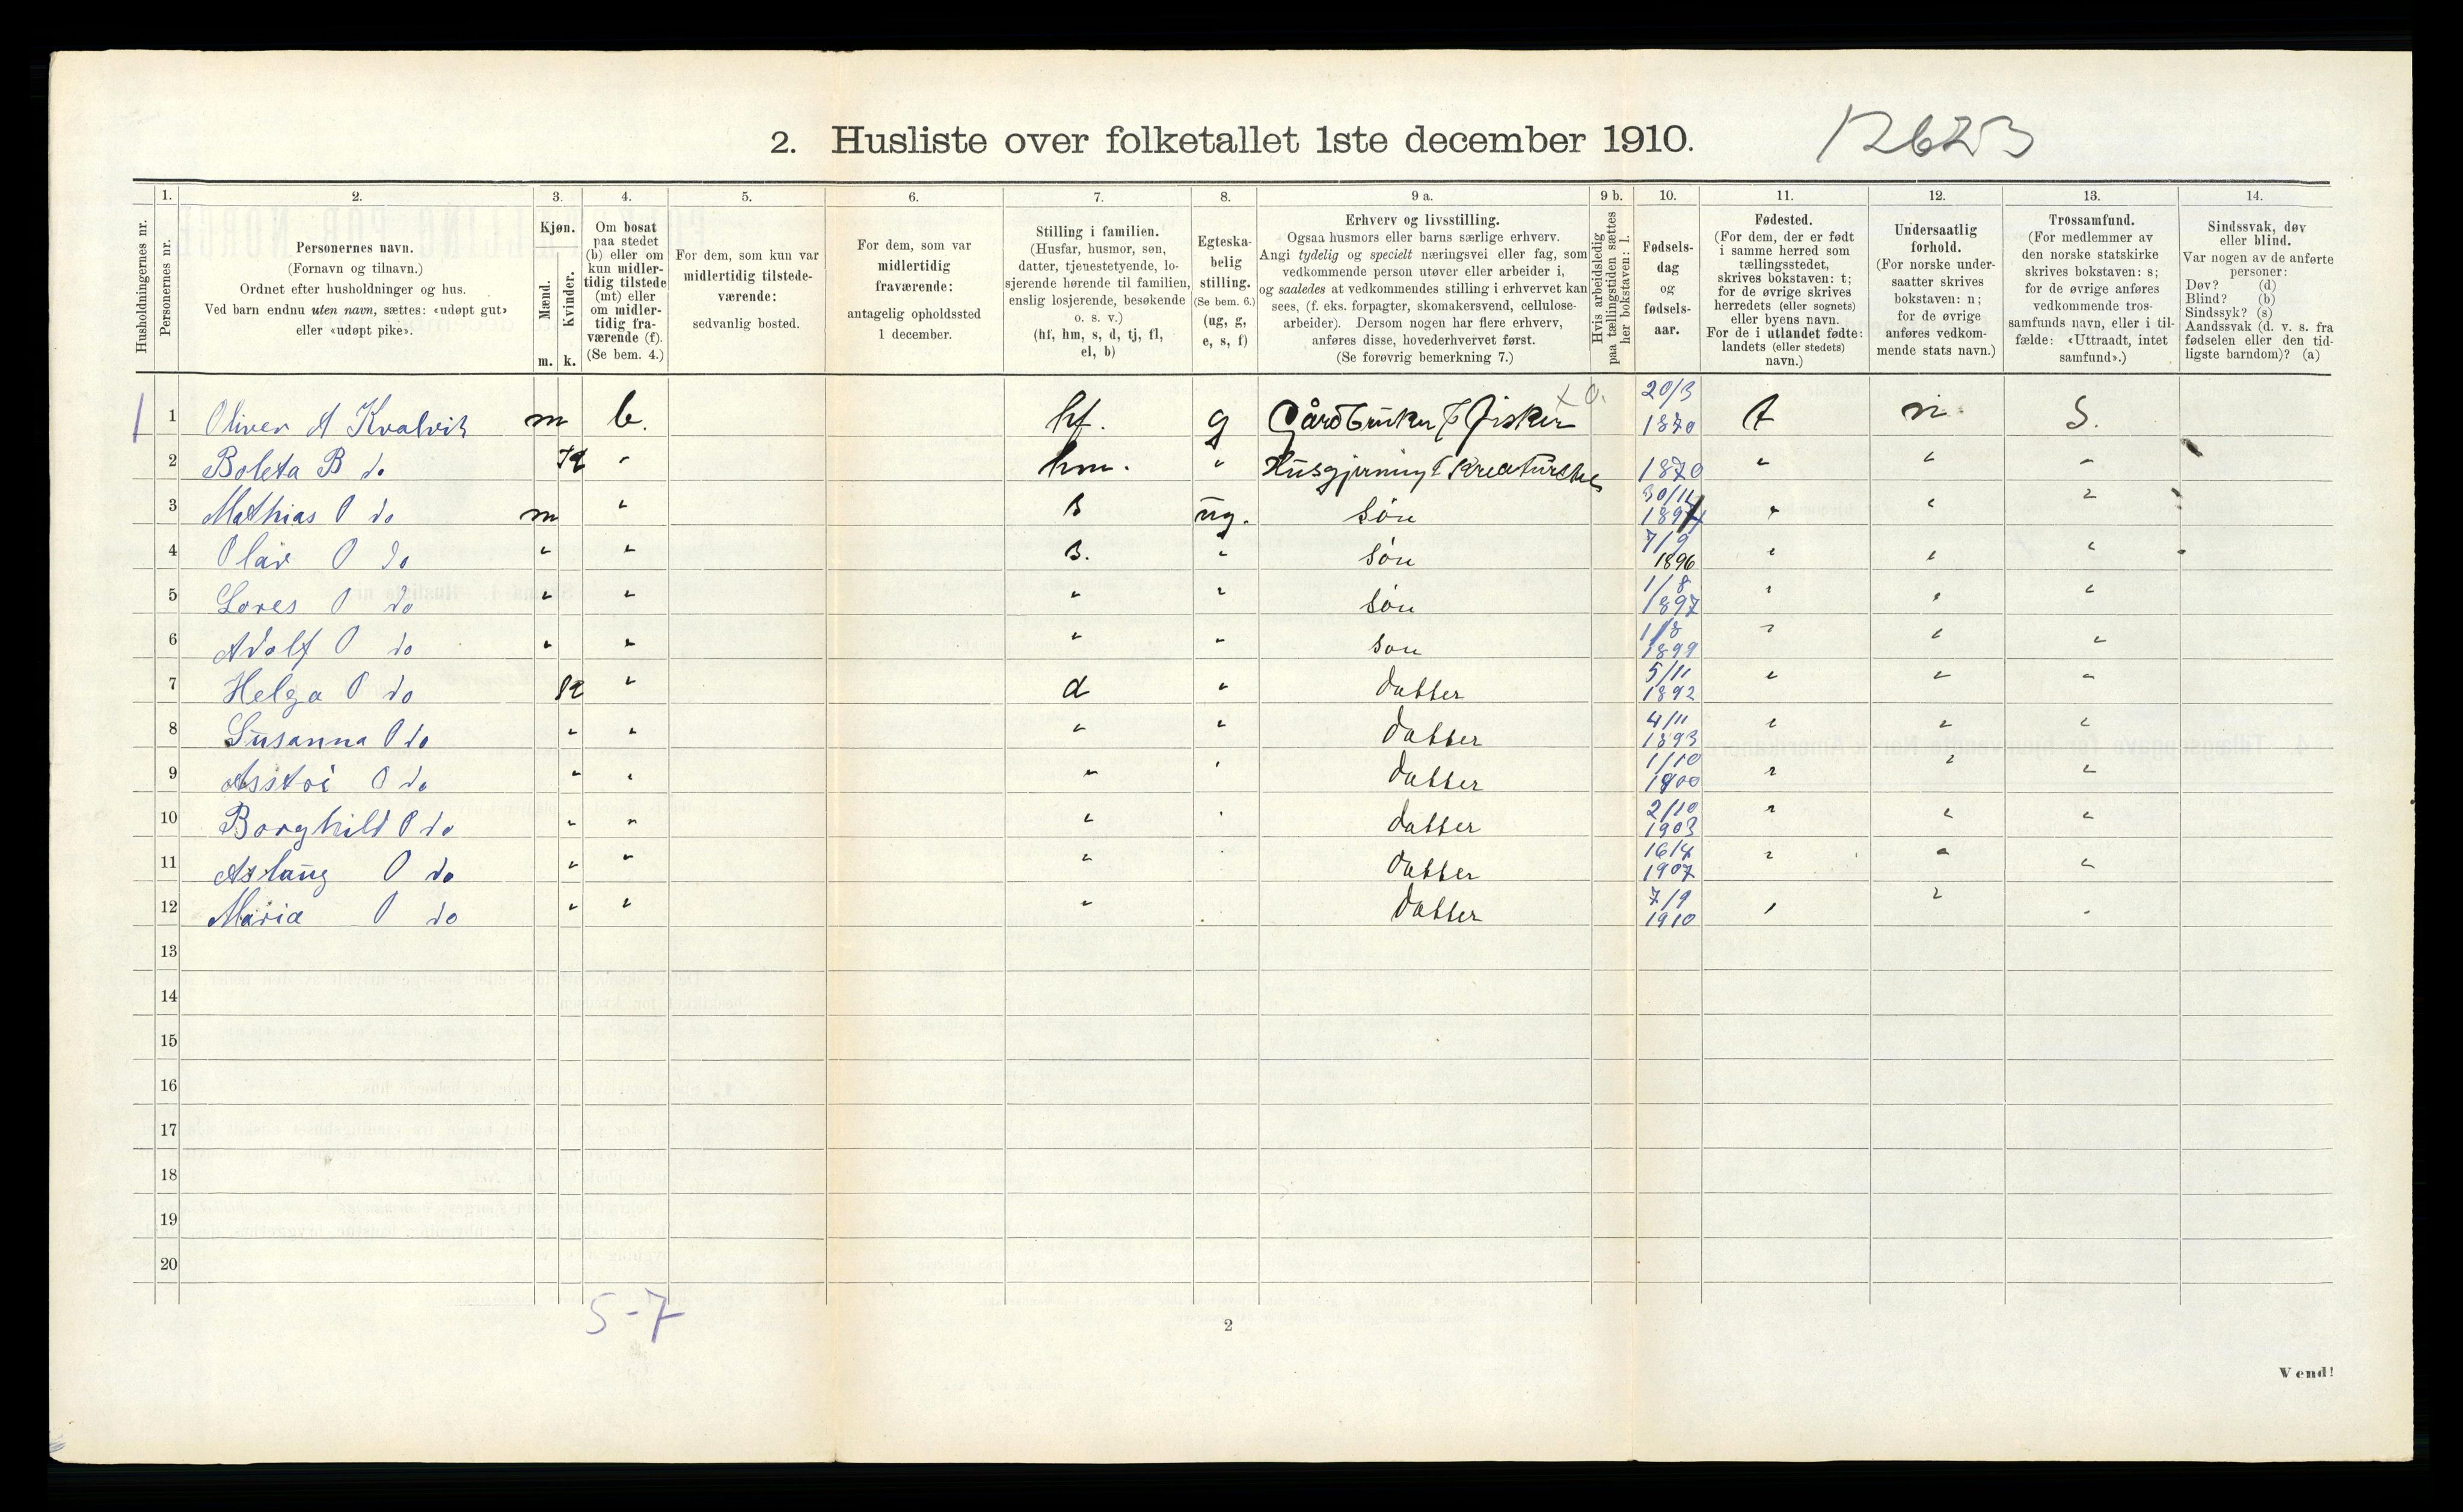 2. Husliste over folketallet 1ste december 1910.
12623
Husholdningernes nr.
1. Personernes nr.
2. Personernes navn. (Fornavn og tilnavn.) Ordnet efter husholdninger og hus. Ved barn endnu uten navn, sættes: «udøpt gut» eller «udøpt pike».
3. Kjøn. Mænd. m. Kvinder. k.
4. Om bosat paa stedet (b) eller om kun midlertidig tilstede (mt) eller om midlertidig fraværende (f). (Se bem. 4.)
5. For dem, som kun var midlertidig tilstedeværende: sedvanlig bosted.
6. For dem, som var midlertidig fraværende: antagelig opholdssted 1 december.
7. Stilling i familien. (Husfar, husmor, søn, datter, tjenestetyende, losjerende hørende til familien, enslig losjerende, besøkende o. s. v.) (hf, hm, s, d, tj, fl, el, b)
8. Egteskabelig stilling. (Se bem. 6.) (ug, g, e, s, f)
9 a. Erhverv og livsstilling. Ogsaa husmors eller barns særlige erhverv. Angi tydelig og specielt næringsvei eller fag, som vedkommende person utøver eller arbeider i, og saaledes at vedkommendes stilling i erhvervet kan sees, (f. eks. forpagter, skomakersvend, cellulosearbeider). Dersom nogen har flere erhverv, anføres disse, hovederhvervet først. (Se forøvrig bemerkning 7.)
9 b. Hvis arbeidsledig paa tællingstiden sættes her bokstaven: l.
10. Fødselsdag og fødselsaar.
11. Fødested. (For dem, der er født i samme herred som tællingsstedet, skrives bokstaven: t; for de øvrige skrives herredets (eller sognets) eller byens navn. For de i utlandet fødte: landets (eller stedets) navn.)
12. Undersaatlig forhold. (For norske undersaatter skrives bokstaven: n; for de øvrige anføres vedkommende stats navn.)
13. Trossamfund. (For medlemmer av den norske statskirke skrives bokstaven: s; for de øvrige anføres vedkommende trossamfunds navn, eller i tilfælde: «Uttraadt, intet samfund».)
14. Sindssvak, døv eller blind. Var nogen av de anførte personer: Døv? (d) Blind? (b) Sindssyk? (s) Aandssvak (d. v. s. fra fødselen eller den tidligste barndom)? (a)
1 1 Oliver A Kvalvik m b. hf. g Gårdbruker & Fisker x o. 20/3 1870 t n S.
2 Boleta B do K " hm. " Husgjerning & Kreaturstel 1870 " " "
3 Mathias O do m " s ug. søn 30/11 1894 " " "
4 Olav O do " " s. " søn 7/9 1896 " " "
5 Lores O do " " " " søn 1/8 1897 " " "
6 Adolf O do " " " " søn 1/8 1899 " " "
7 Helga O do K " d " datter 5/11 1892 " " "
8 Susanna O do " " " " datter 4/11 1893 " " "
9 Asstri O do " " " " datter 1/10 1900 " " "
10 Borghild O do " " " " datter 2/10 1903 " " "
11 Aslaug O do " " " datter 16/4 1907 " " "
12 Maria O do " " " datter 7/9 1910 " " "
13
14
15
16
17
18
19
20
5-7
2
Vend!